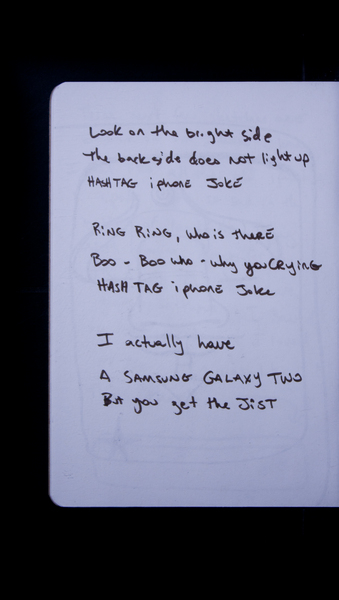 Look on the bright side
the back side does not light up
HASHTAG iphone JOKE
RiNG RiNG, who is thERE
Boo - Boo who - why you CRYiNG
HASH TAG iphone Joke
I actually have
A SAMSUNG GALAXY TWO
But you get the JiST